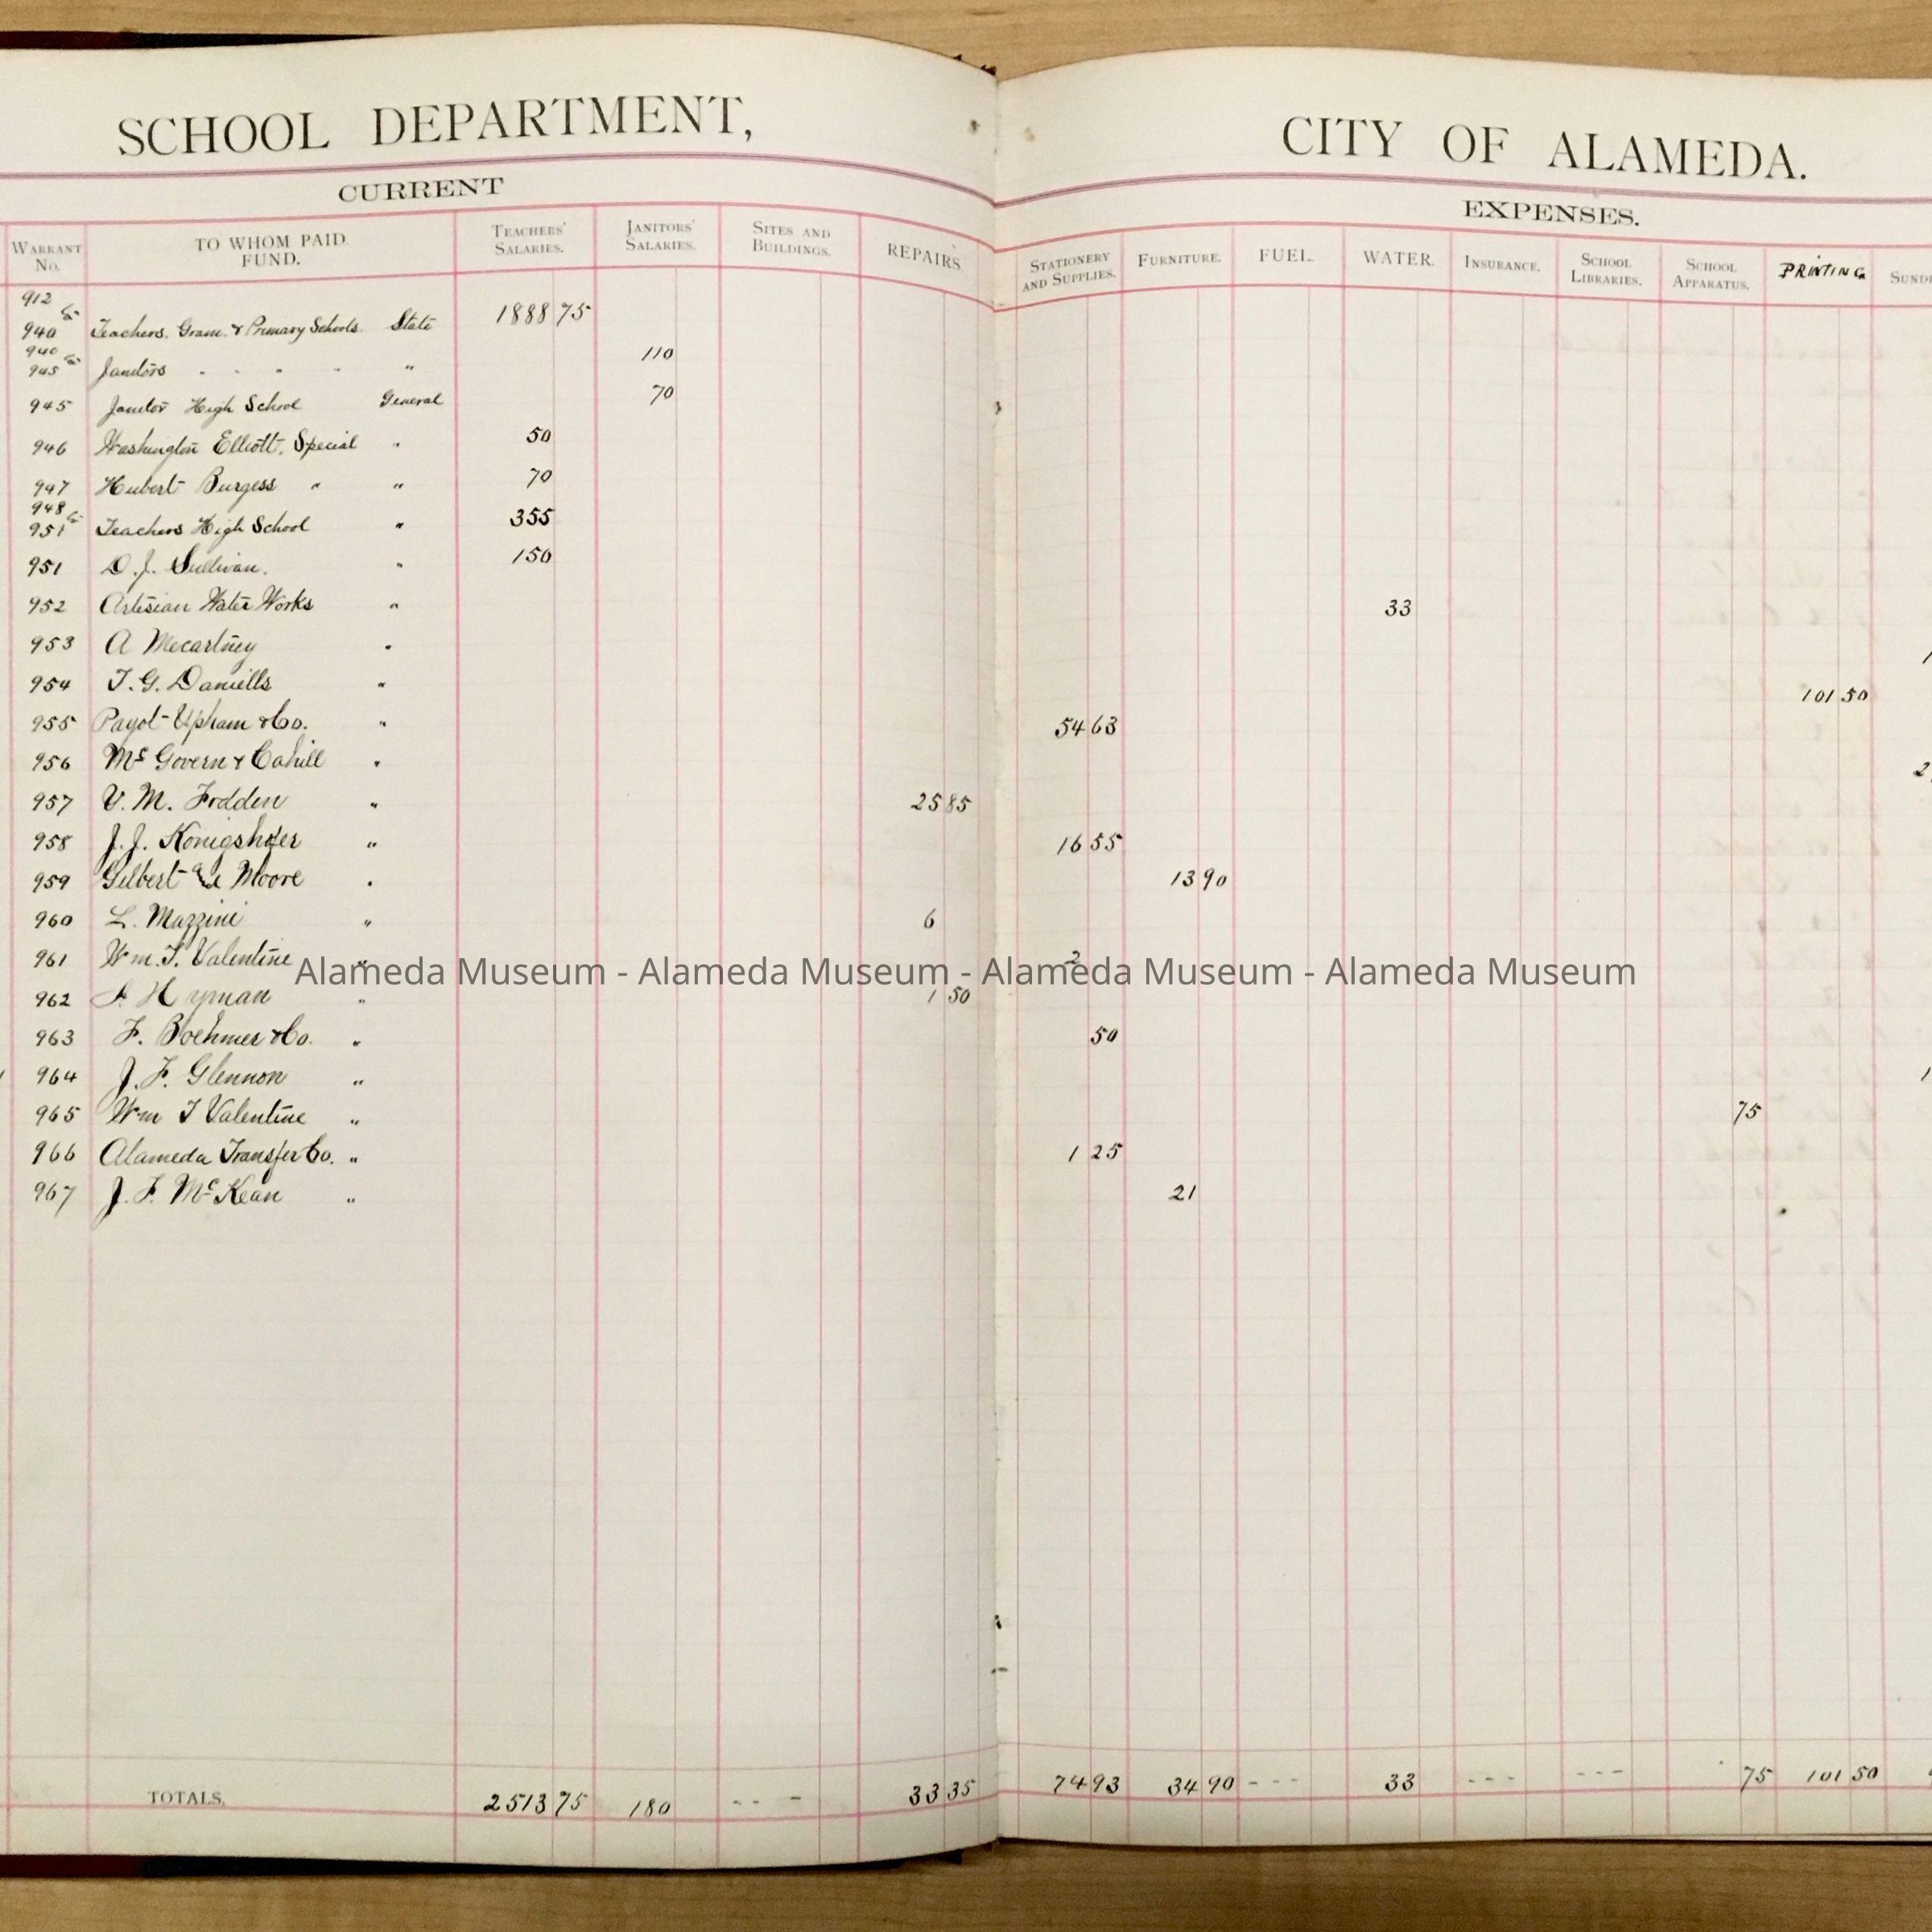 SCHOOL DEPARTMENT, CITY OF ALAMEDA.
CURRENT EXPENSES.
WARRANT No. TO WHOM PAID. FUND. TEACHERS' SALARIES. JANITORS' SALARIES. SITES AND BUILDINGS. REPAIRS. STATIONERY AND SUPPLIES. FURNITURE. FUEL. WATER. INSURANCE. SCHOOL LIBRARIES. SCHOOL APPARATUS. PRINTING
912 to
940 Teachers. Gram. & Primary Schools. State 1888 75
940 to
945 Janitors " 110
945 Janitor High School General 70
946 Washington Elliott, Special " 50
947 Hubert Burgess " " 70
948 to
951 Teachers High School " 355
951 D.J. Sullivan. " 150
952 Artesian Water Works " 33
953 A Mecartney "
954 T.G. Daniells " 101 50
955 Payot Upham & Co. " 54 63
956 Mc Govern & Cahill "
957 V.M. Frodden " 25 85
958 J.J. Konigshofer " 16 55
959 Gilbert & Moore " 13 90
960 L. Mazzini " 6
961 Wm. T. Valentine " 2
962 Hyman " 1 50
963 F. Boehmer & Co. " 50
964 J.F. Glennon "
965 Wm T Valentine " 75
966 Alameda Transfer Co. " 1 25
967 J.F. McKean " 21
TOTALS. 2513 75 180 -- - 33 35 74 93 34 90 --- 33 --- --- 75 101 50
Alameda Museum - Alameda Museum - Alameda Museum - Alameda Museum